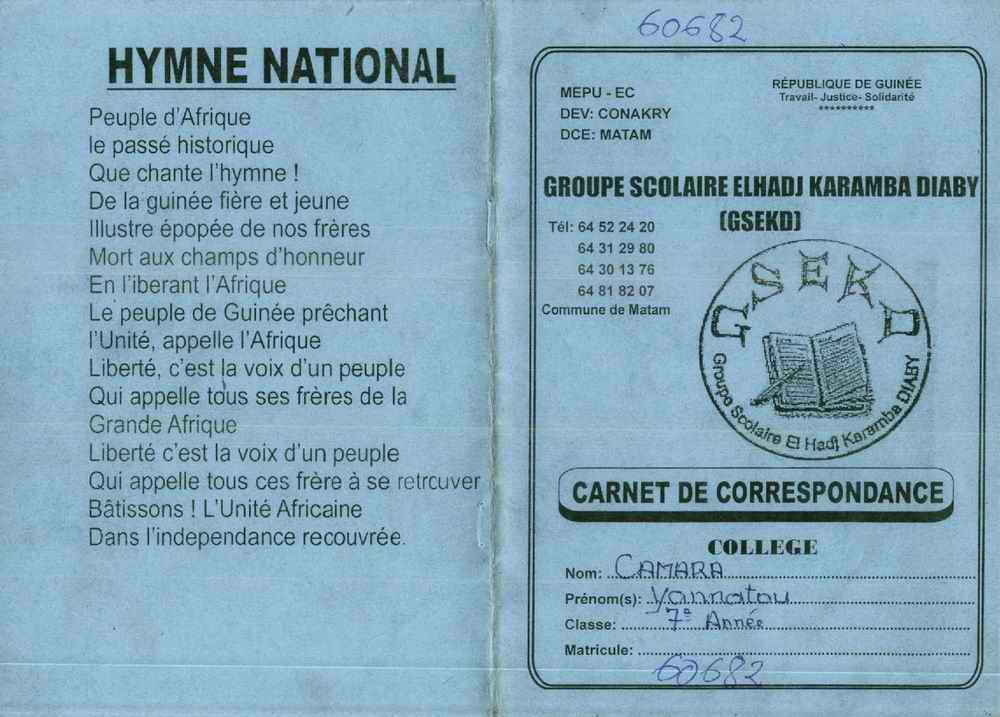 HYMNE NATIONAL
Peuple d'Afrique
le passé historique
Que chante l'hymne !
De la guinée fière et jeune
Illustre épopée de nos frères
Mort aux champs d'honneur
En l'iberant l'Afrique
Le peuple de Guinée prêchant
l'Unité, appelle l'Afrique
Liberté, c'est la voix d'un peuple
Qui appelle tous ses frères de la
Grande Afrique
Liberté c'est la voix d'un peuple
Qui appelle tous ces frère à se retrcuver
Bâtissons ! L'Unité Africaine
Dans l'independance recouvrée.
60682
MEPU - EC
DEV: CONAKRY
DCE: MATAM
RÉPUBLIQUE DE GUINÉE
Travail- Justice- Solidarité
**********
GROUPE SCOLAIRE ELHADJ KARAMBA DIABY
(GSEKD)
Tél: 64 52 24 20
64 31 29 80
64 30 13 76
64 81 82 07
Commune de Matam
GSEKD
Groupe Scolaire El Hadj Karamba DIABY
CARNET DE CORRESPONDANCE
COLLEGE
Nom: CAMARA
Prénom(s): Yannatou
Classe: 7e Année
Matricule:
60682